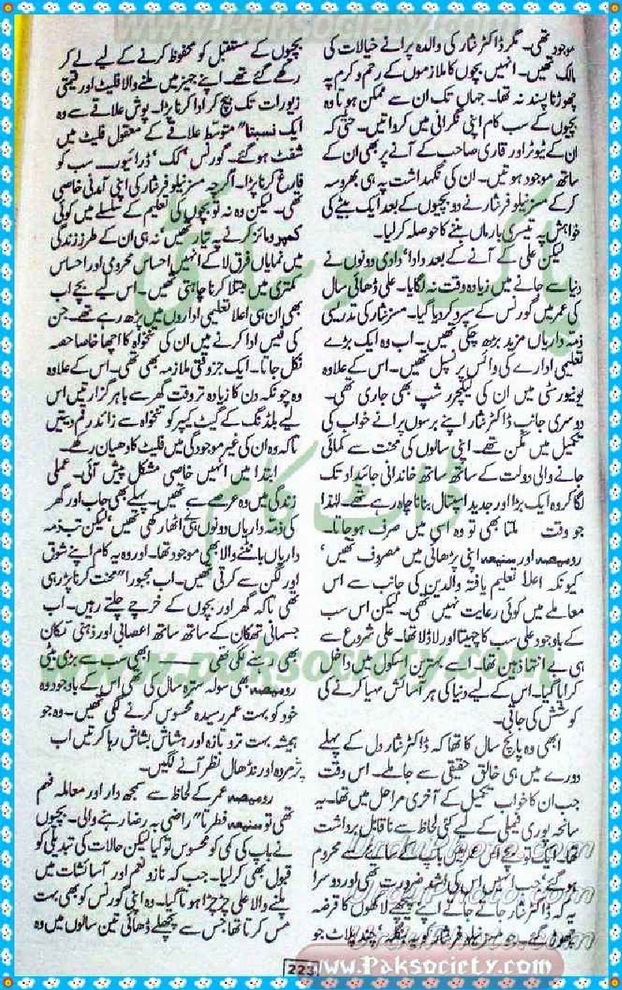 موجود تھی۔ مگر ڈاکٹر نثار کی والدہ پرانے خیالات کی
مالک تھیں۔ انہیں بچوں کا ملازموں کے رحم و کرم پہ
چھوڑنا پسند نہ تھا۔ جہاں تک ان سے ممکن ہوتا وہ
بچوں کے سب کام اپنی نگرانی میں کرواتیں۔ حتیٰ کہ
ان کے ٹیوٹر اور قاری صاحب کے آنے پر بھی ان کے
ساتھ موجود ہوتیں۔ ان کی نگہداشت پہ ہی بھروسہ
کر کے مسز نیلو فر نثار نے دو بچیوں کے بعد ایک بیٹے کی
خواہش پر تیسری بار ماں بننے کا حوصلہ کر لیا۔
لیکن علی کے آنے کے بعد دادا' دادی دونوں نے
دنیا سے جانے میں زیادہ وقت نہ لگایا۔ علی ڈھائی سال
کی عمر میں گورنس کے سپرد کر دیا گیا۔ مسز نثار کی تدریسی
ذمہ داریاں مزید بڑھ چکی تھیں۔ اب وہ ایک بڑے
تعلیمی ادارے کی وائس پرنسپل تھیں۔ اس کے علاوہ
یونیورسٹی میں ان کی لیکچرر شپ بھی جاری تھی۔
دوسری جانب ڈاکٹر نثار اپنے برسوں پرانے خواب کی
تکمیل میں مگن تھے۔ اپنی سالوں کی محنت سے کمائی
جانے والی دولت کے ساتھ ساتھ خاندانی جائیداد تک
لگا کر وہ ایک بڑا اور جدید اسپتال بنانا چاہ رہے تھے۔ لہٰذا
جو وقت ملتا بھی تو وہ اسی میں صرف ہو جاتا۔
رومیصہ اور سنیعہ اپنی پڑھائی میں مصروف تھیں'
کیونکہ اعلا تعلیم یافتہ والدین کی جانب سے اس
معاملے میں کوئی رعایت نہیں تھی۔ لیکن اس سب
کے باوجود علی سب کا چہیتا اور لاڈلا تھا۔ علی شروع سے
ہی بے انتہا ذہین تھا۔ اسے بہترین اسکول میں داخل
کرایا گیا۔ اس کے لیے دنیا کی ہر آسائش مہیا کرنے کی
کوشش کی جاتی۔
ابھی وہ پانچ سال کا تھا کہ ڈاکٹر نثار دل کے پہلے
دورے میں ہی خالق حقیقی سے جا ملے۔ اس وقت
جب ان کا خواب تکمیل کے آخری مراحل میں تھا۔ یہ
سانحہ پوری فیملی کے لیے کئی لحاظ سے ناقابل برداشت
تھا۔ ایک تو بچے اس عمر میں باپ کے سائے سے محروم
ہو گئے' جب انہیں اس کی اشد ضرورت تھی اور دوسرا
یہ کہ ڈاکٹر نثار جاتے جاتے اپنے پیچھے لاکھوں کا قرضہ
چھوڑ گئے۔ مسز نیلو فر نثار کو چند پلاٹ جو
بچوں کے مستقبل کو محفوظ کرنے کے لیے لے کر
رکھے گئے تھے۔ اپنے جہیز میں ملنے والا فلیٹ اور قیمتی
زیورات تک بیچ کر ادا کرنا پڑا۔ پوش علاقے سے وہ
ایک نسبتاً" متوسط علاقے کے معقول فلیٹ میں
شفٹ ہو گئے۔ گورنس' کک' ڈرائیور سب کو
فارغ کرنا پڑا۔ اگرچہ مسز نیلو فر نثار کی اپنی آمدنی خاصی
تھی۔ لیکن وہ نہ تو بچوں کی تعلیم کے سلسلے میں کوئی
کمپرومائز کرنے پہ تیار تھیں' نہ ہی ان کے طرز زندگی
میں نمایاں فرق لا کے انہیں احساس محرومی اور احساس
کمتری میں مبتلا کرنا چاہتی تھیں۔ اس لیے بچے اب
بھی ان ہی اعلا تعلیمی اداروں میں پڑھ رہے تھے۔ جن
کی فیس ادا کرنے میں ان کی تنخواہ کا اچھا خاصا حصہ
نکل جاتا۔ ایک جزوقتی ملازمہ بھی تھی۔ اس کے علاوہ
وہ چونکہ دن کا زیادہ تر وقت گھر سے باہر گزارتیں اس
لیے بلڈنگ کے گیٹ کیپر کو تنخواہ سے زائد رقم دیتیں
تاکہ وہ ان کی غیر موجودگی میں فلیٹ کا دھیان رکھے۔
ابتدا میں انہیں خاصی مشکل پیش آئی۔ عملی
زندگی میں وہ عرصے سے تھیں۔ پہلے بھی جاب اور گھر
کی ذمہ داریاں دونوں ہی اٹھا رکھی تھیں' لیکن تب ذمہ
داریاں بانٹنے والا بھی موجود تھا۔ اور وہ یہ کام اپنے شوق
اور لگن سے کرتی تھیں۔ اب مجبوراً" محنت کرنا پڑ رہی
تھی تاکہ گھر اور بچوں کے خرچے چلتے رہیں۔ اب
جسمانی تھکان کے ساتھ ساتھ اعصابی اور ذہنی تھکان
بھی رہنے لگی تھی ــــ ابھی سب سے بڑی بیٹی
رومیصہ بھی سولہ سترہ سال کی تھی اس کے باوجود وہ
خود کو بہت عمر رسیدہ محسوس کرنے لگی تھیں۔ وہ جو
ہمیشہ بہت تر و تازہ اور ہشاش بشاش رہا کرتیں اب
پژمردہ اور نڈھال نظر آنے لگیں۔
رومیصہ عمر کے لحاظ سے سمجھ دار اور معاملہ فہم
تھی تو سنیعہ فطرتاً" راضی بہ رضا رہنے والی۔ بچیوں
نے باپ کی کمی کو محسوس تو کیا لیکن حالات کی تبدیلی کو
قبول بھی کر لیا۔ جب کہ ناز و نعم اور آسائشات میں
پلنے والا علی چڑچڑا ہوتا گیا۔ وہ اپنی گورنس کو بھی بہت
مس کرتا تھا جس سے پچھلے ڈھائی تین سالوں میں وہ
223
www.Paksociety.com
www.paksociety.com
UrduPhoto.com
UrduPhoto.com
www.Paksociety.com